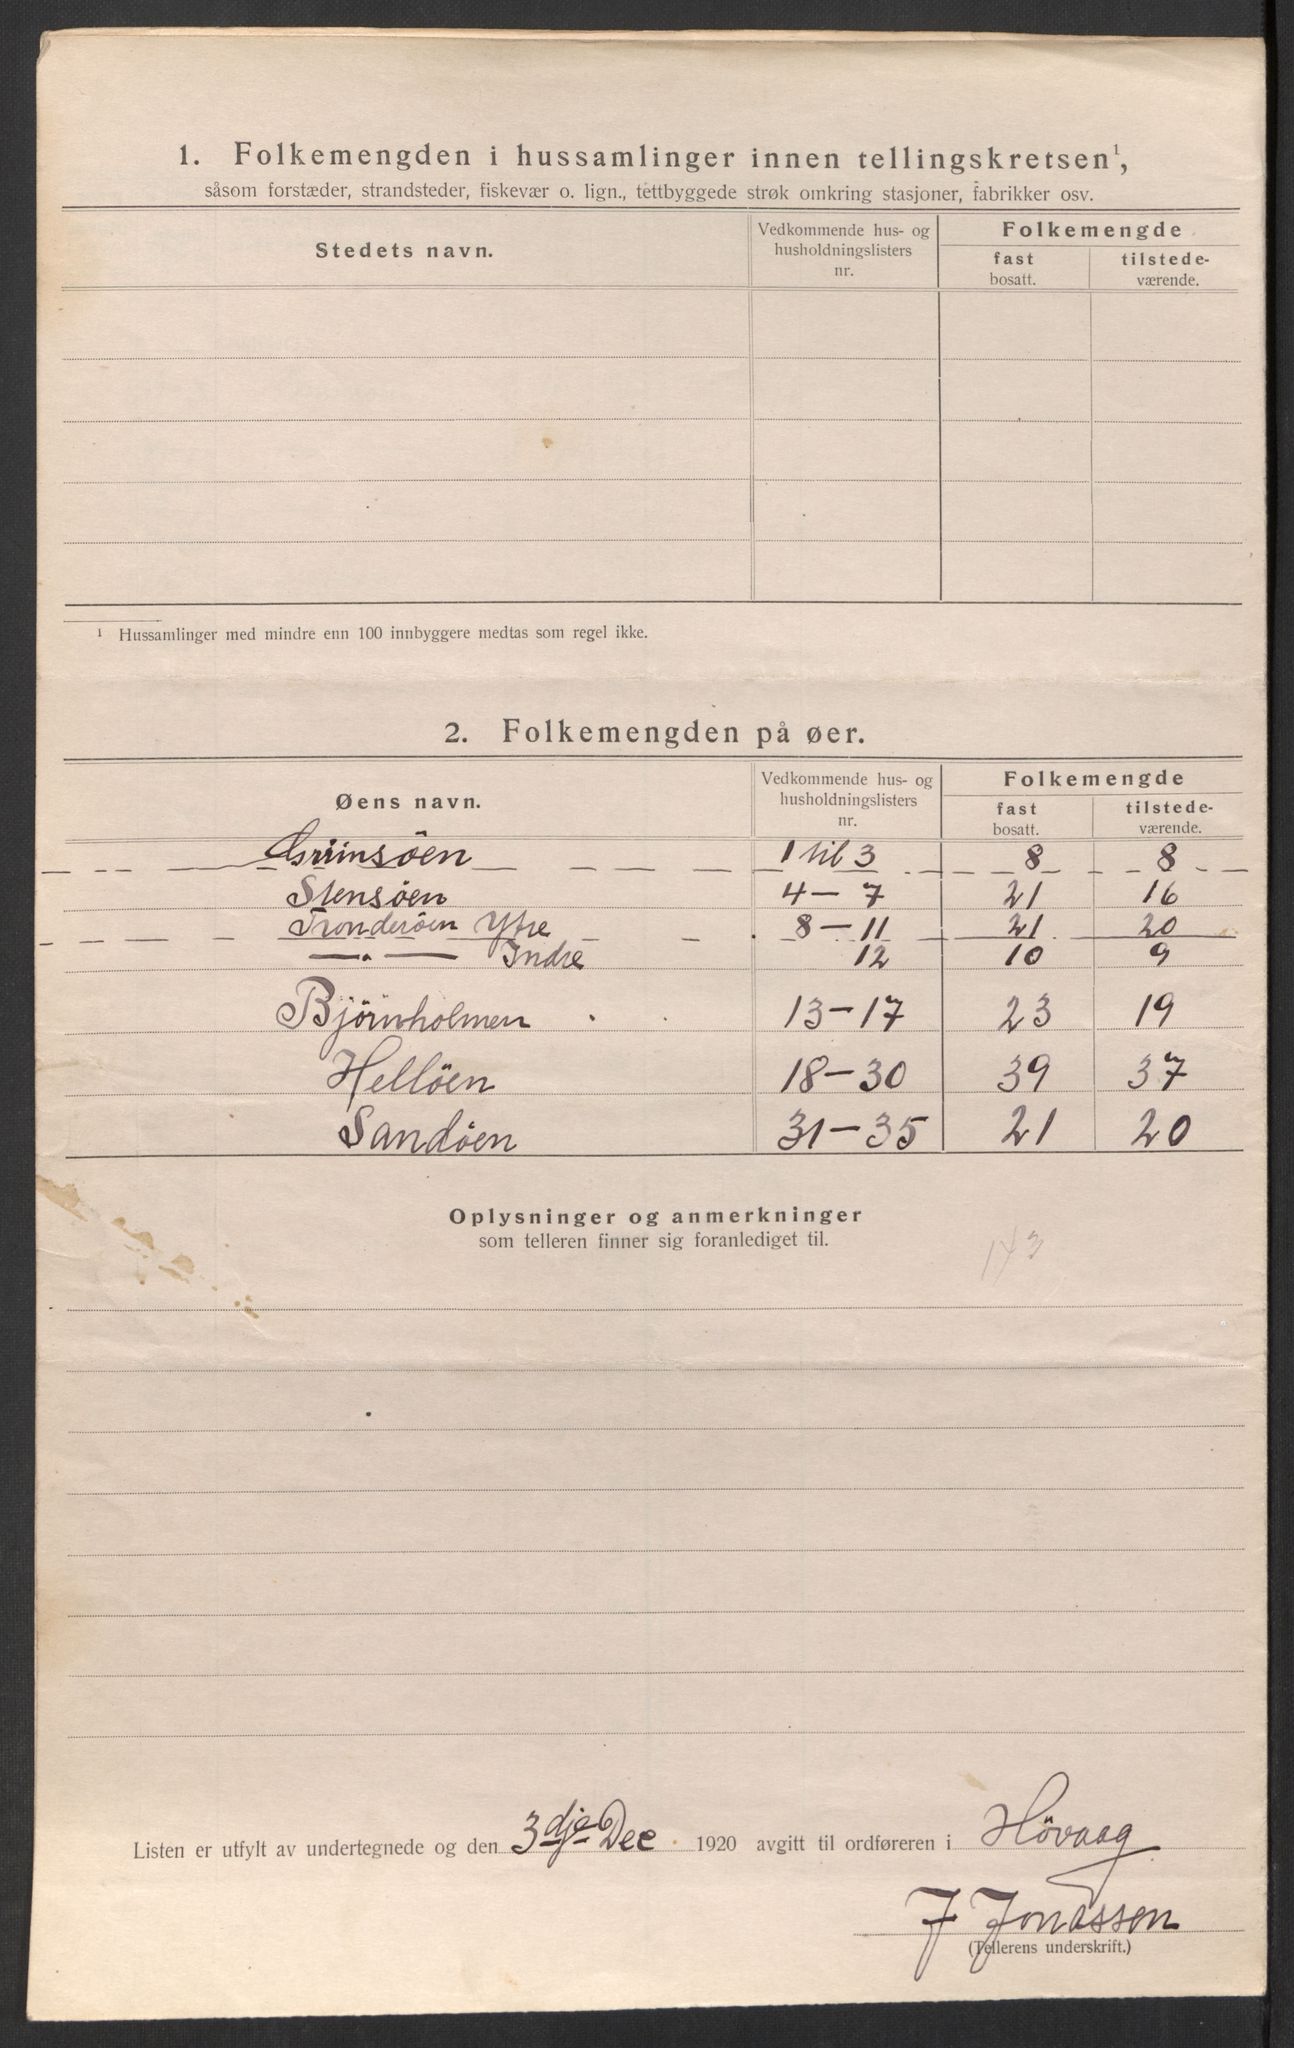 1. Folkemengden i hussamlinger innen tellingskretsen¹,
såsom forstæder, strandsteder, fiskevær o. lign., tettbyggede strøk omkring stasjoner, fabrikker osv.
Stedets navn.
Vedkommende hus- og
husholdningslisters
nr.
Folkemengde
fast
bosatt.
tilstede-
værende.
¹ Hussamlinger med mindre enn 100 innbyggere medtas som regel ikke.
2. Folkemengden på øer.
Øens navn.
Vedkommende hus- og
husholdningslisters
nr.
Folkemengde
fast
bosatt.
tilstede-
værende.
Grimsöen 1 til 3 8 8
Stensöen 4 — 7 21 16
Tronderöen Ytre 8 — 11 21 20
—„— Indre 12 10 9
Björnholmen 13 — 17 23 19
Hellöen 18 — 30 39 37
Sandöen 31 — 35 21 20
Oplysninger og anmerkninger
som telleren finner sig foranlediget til.
143
Listen er utfylt av undertegnede og den 3dje Dec 1920 avgitt til ordføreren i Hövaag
J Jonassen
(Tellerens underskrift.)